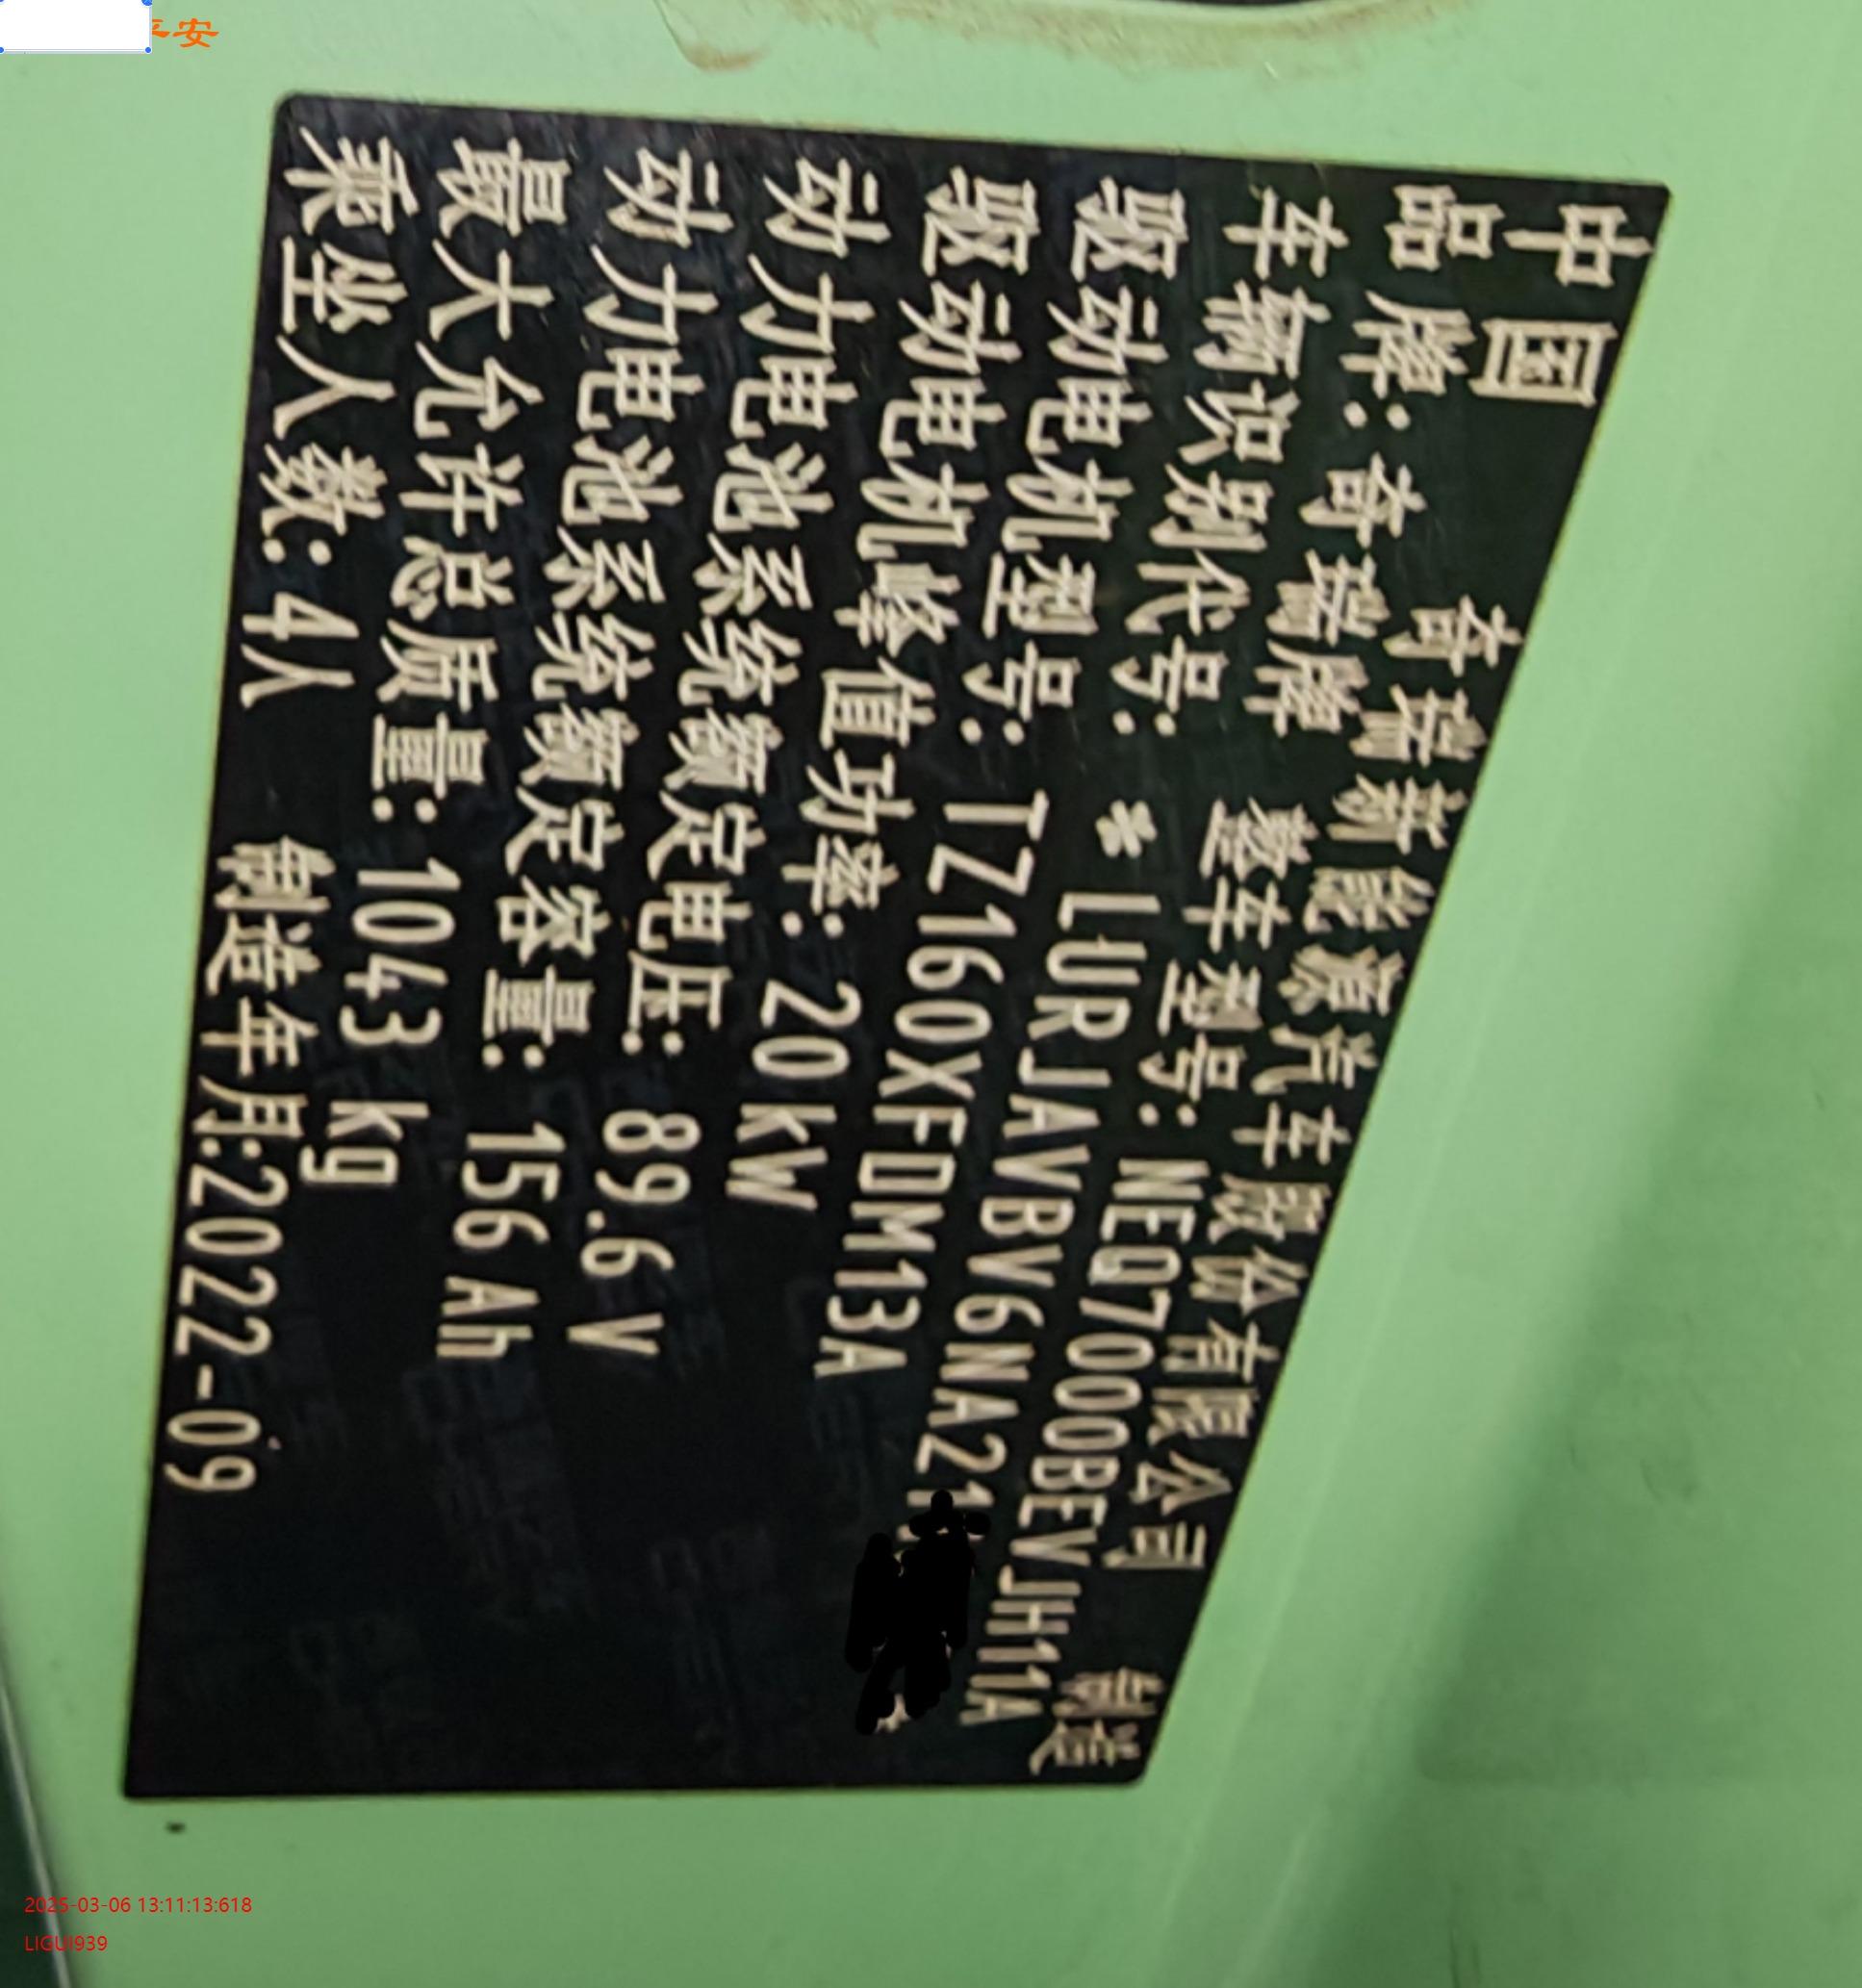 平安
中国 奇瑞新能源汽车股份有限公司 制造
品牌:奇瑞牌 整车型号:NEQ7000BEVJH11A
车辆识别代号: * LURJAVBV6NA21
驱动电机型号: TZ160XFDM13A
驱动电机峰值功率: 20 kW
动力电池系统额定电压: 89.6 V
动力电池系统额定容量: 156 Ah
最大允许总质量: 1043 kg
乘坐人数:4人 制造年月:2022-09
2025-03-06 13:11:13:618
LIGUI939